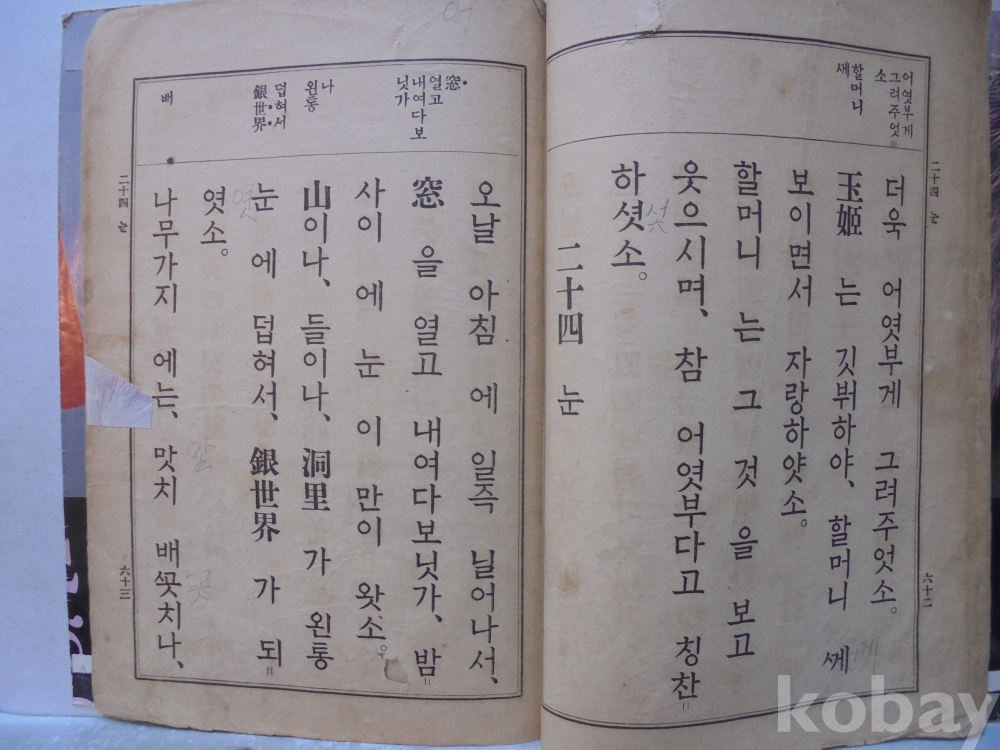 어엿부게
그려주엇
소
할머니
ᄭᅦ
二十四 눈
더욱 어엿부게 그려주엇소。
玉姬 는 깃ᄲᅥ하야、 할머니 ᄭᅦ
보이면서 자랑하얏소。
할머니 는 그 것 을 보고
웃으시며、 참 어엿부다고 칭찬=
하셧소。
二十四 눈
六十二
窓
열고
내여다보
닛가
나
왼통
덥혀서
銀世界
배
오날 아침 에 일즉 닐어나서、
窓 을 열고 내여다보닛가、 밤=
사이 에 눈 이 만이 왓소。
山이나、 들이나、 洞里 가 왼통
눈 에 덥혀서、 銀世界 가 되=
엿소。
나무가지 에는、 맛치 배ᄭᅩᆺ치나、
二十四 눈
六十三
kobay